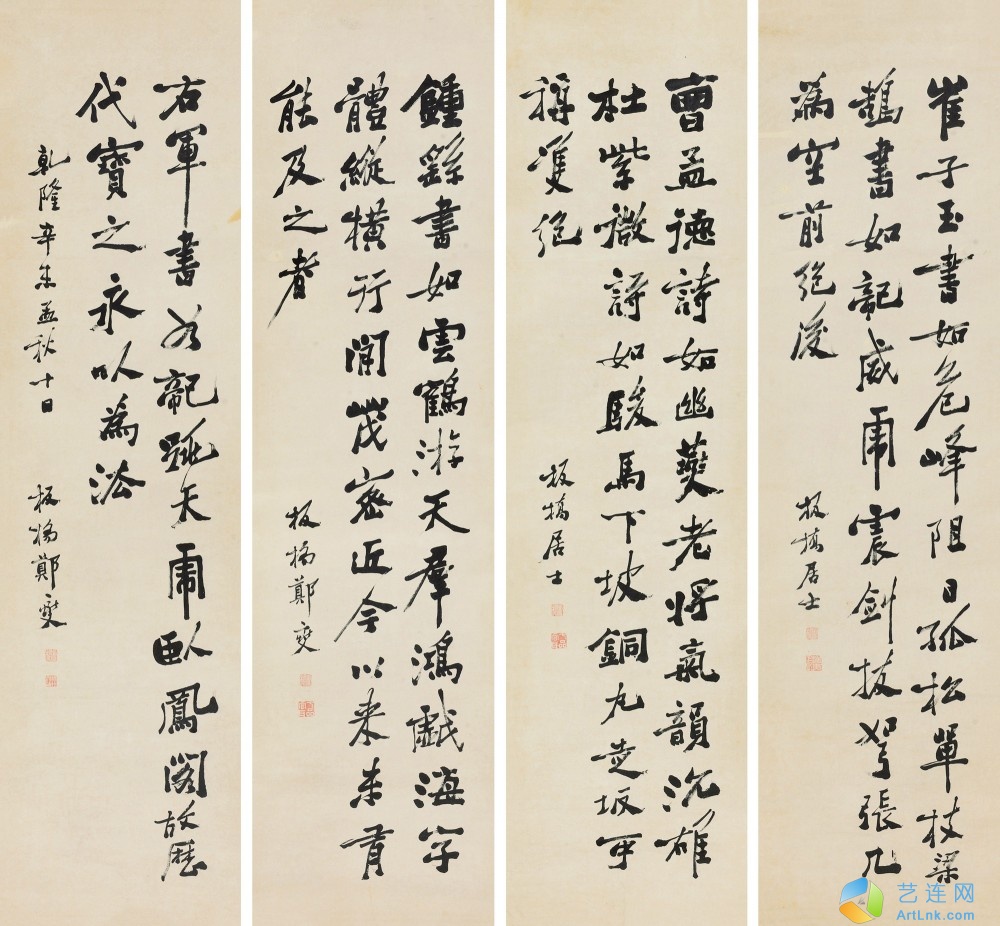 崔子玉書如危峰阻日孤松單枝梁
鵠書如龍威虎震劍拔弩張
為空前絕後
板橋居士
曹孟德詩如幽燕老將氣韻沉雄
杜紫微詩如駿馬下坡銅丸走坂可
稱雙絕
板橋居士
鍾繇書如雲鶴游天群鴻戲海字
體縱橫行間茂密近今以來未有
能及之者
板橋鄭燮
右軍書如龍跳天虎臥鳳閣故歷
代寶之永以為法
乾隆辛未孟秋十日
板橋鄭燮
艺连网
ArtLnk.com